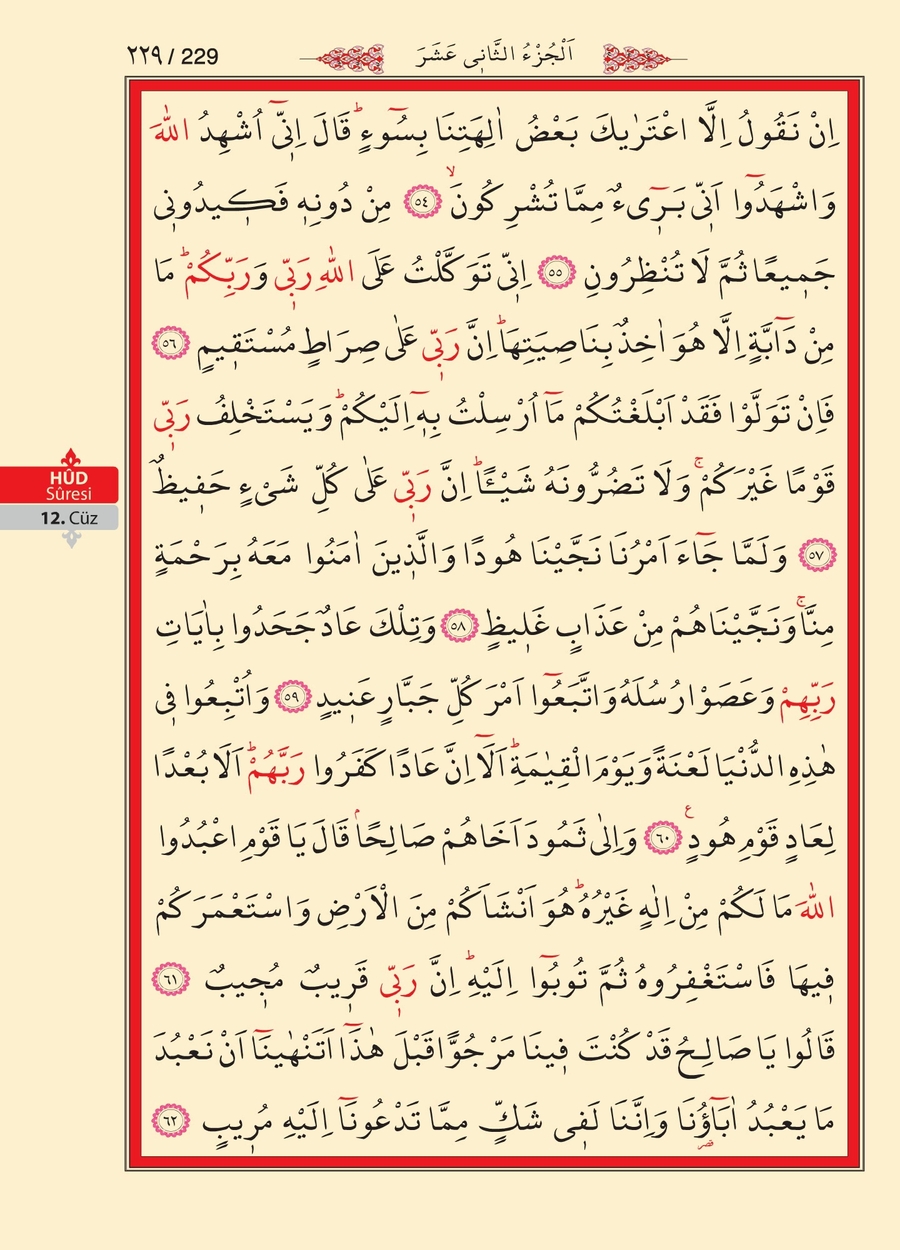 ٢٢٩ / 229
اَلْجُزْءُ الثَّانٖى عَشَرَ
اِنْ نَقُولُ اِلَّا اعْتَرٰيكَ بَعْضُ اٰلِهَتِنَا بِسُٓوءٍؕ قَالَ اِنّٖٓى اُشْهِدُ اللّٰهَ
وَاشْهَدُٓوا اَنّٖى بَرٖٓىءٌ مِمَّا تُشْرِكُونَۙ ﴿٥٤﴾ مِنْ دُونِهٖ فَكٖيدُونٖى
جَمٖيعًا ثُمَّ لَا تُنْظِرُونِ ﴿٥٥﴾ اِنّٖى تَوَكَّلْتُ عَلَى اللّٰهِ رَبّٖى وَرَبِّكُمْؕ مَا
مِنْ دَٓابَّةٍ اِلَّا هُوَ اٰخِذٌ بِنَاصِيَتِهَاؕ اِنَّ رَبّٖى عَلٰى صِرَاطٍ مُسْتَقٖيمٍ ﴿٥٦﴾
فَاِنْ تَوَلَّوْا فَقَدْ اَبْلَغْتُكُمْ مَٓا اُرْسِلْتُ بِهٖٓ اِلَيْكُمْؕ وَيَسْتَخْلِفُ رَبّٖى
قَوْمًا غَيْرَكُمْۚ وَلَا تَضُرُّونَهُ شَيْـًٔاؕ اِنَّ رَبّٖى عَلٰى كُلِّ شَىْءٍ حَفٖيظٌ
﴿٥٧﴾ وَلَمَّا جَٓاءَ اَمْرُنَا نَجَّيْنَا هُودًا وَالَّذٖينَ اٰمَنُوا مَعَهُ بِرَحْمَةٍ
مِنَّاۚ وَنَجَّيْنَاهُمْ مِنْ عَذَابٍ غَلٖيظٍ ﴿٥٨﴾ وَتِلْكَ عَادٌ جَحَدُوا بِاٰيَاتِ
رَبِّهِمْ وَعَصَوْا رُسُلَهُ وَاتَّبَعُٓوا اَمْرَ كُلِّ جَبَّارٍ عَنٖيدٍ ﴿٥٩﴾ وَاُتْبِعُوا فٖى
هٰذِهِ الدُّنْيَا لَعْنَةً وَيَوْمَ الْقِيٰمَةِؕ اَلَٓا اِنَّ عَادًا كَفَرُوا رَبَّهُمْؕ اَلَا بُعْدًا
لِعَادٍ قَوْمِ هُودٍ ࣖ ﴿٦٠﴾ وَاِلٰى ثَمُودَ اَخَاهُمْ صَالِحًاۘ قَالَ يَا قَوْمِ اعْبُدُوا
اللّٰهَ مَا لَكُمْ مِنْ اِلٰهٍ غَيْرُهُؕ هُوَ اَنْشَاَكُمْ مِنَ الْاَرْضِ وَاسْتَعْمَرَكُمْ
فٖيهَا فَاسْتَغْفِرُوهُ ثُمَّ تُوبُٓوا اِلَيْهِؕ اِنَّ رَبّٖى قَرٖيبٌ مُجٖيبٌ ﴿٦١﴾
قَالُوا يَا صَالِحُ قَدْ كُنْتَ فٖينَا مَرْجُوًّا قَبْلَ هٰذَٓا اَتَنْهٰينَٓا اَنْ نَعْبُدَ
مَا يَعْبُدُ اٰبَٓاؤُ۬نَا وَاِنَّنَا لَفٖى شَكٍّ مِمَّا تَدْعُونَٓا اِلَيْهِ مُرٖيبٍ ﴿٦٢﴾
قصر
HÛD
Sûresi
12. Cüz